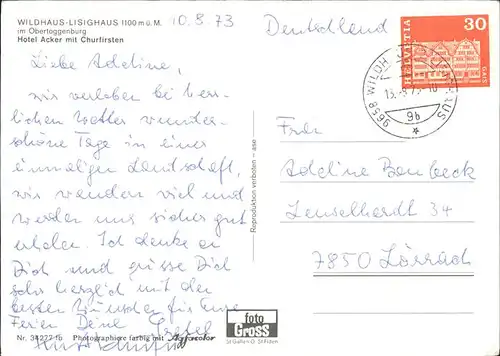 WILDHAUS-LISIGHAUS 1100 m ü. M.
im Obertoggenburg
Hotel Acker mit Churfirsten
10.8 73
Liebe Adeline,
wir verleben bei herr-
lichen Wetter wunder-
schöne Tage in einer
einmaligen Landschaft,
wir wandern viel und
werden uns sicher gut
erholen. Ich denke an
Dich und grüsse Dich
sehr herzlich mit den
besten Wünschen für Eure
Ferien Deine
Nr. 34277 fb Photographiere farbig mit Agfacolor
Reproduktion verboten - ase
foto
Gross
St. Gallen O. St. Fiden
Deutschland
HELVETIA
30
9658 WILDHAUS
9b
Frau
Adeline Benbeck
Lenselhardt 34
7850 Lörrach